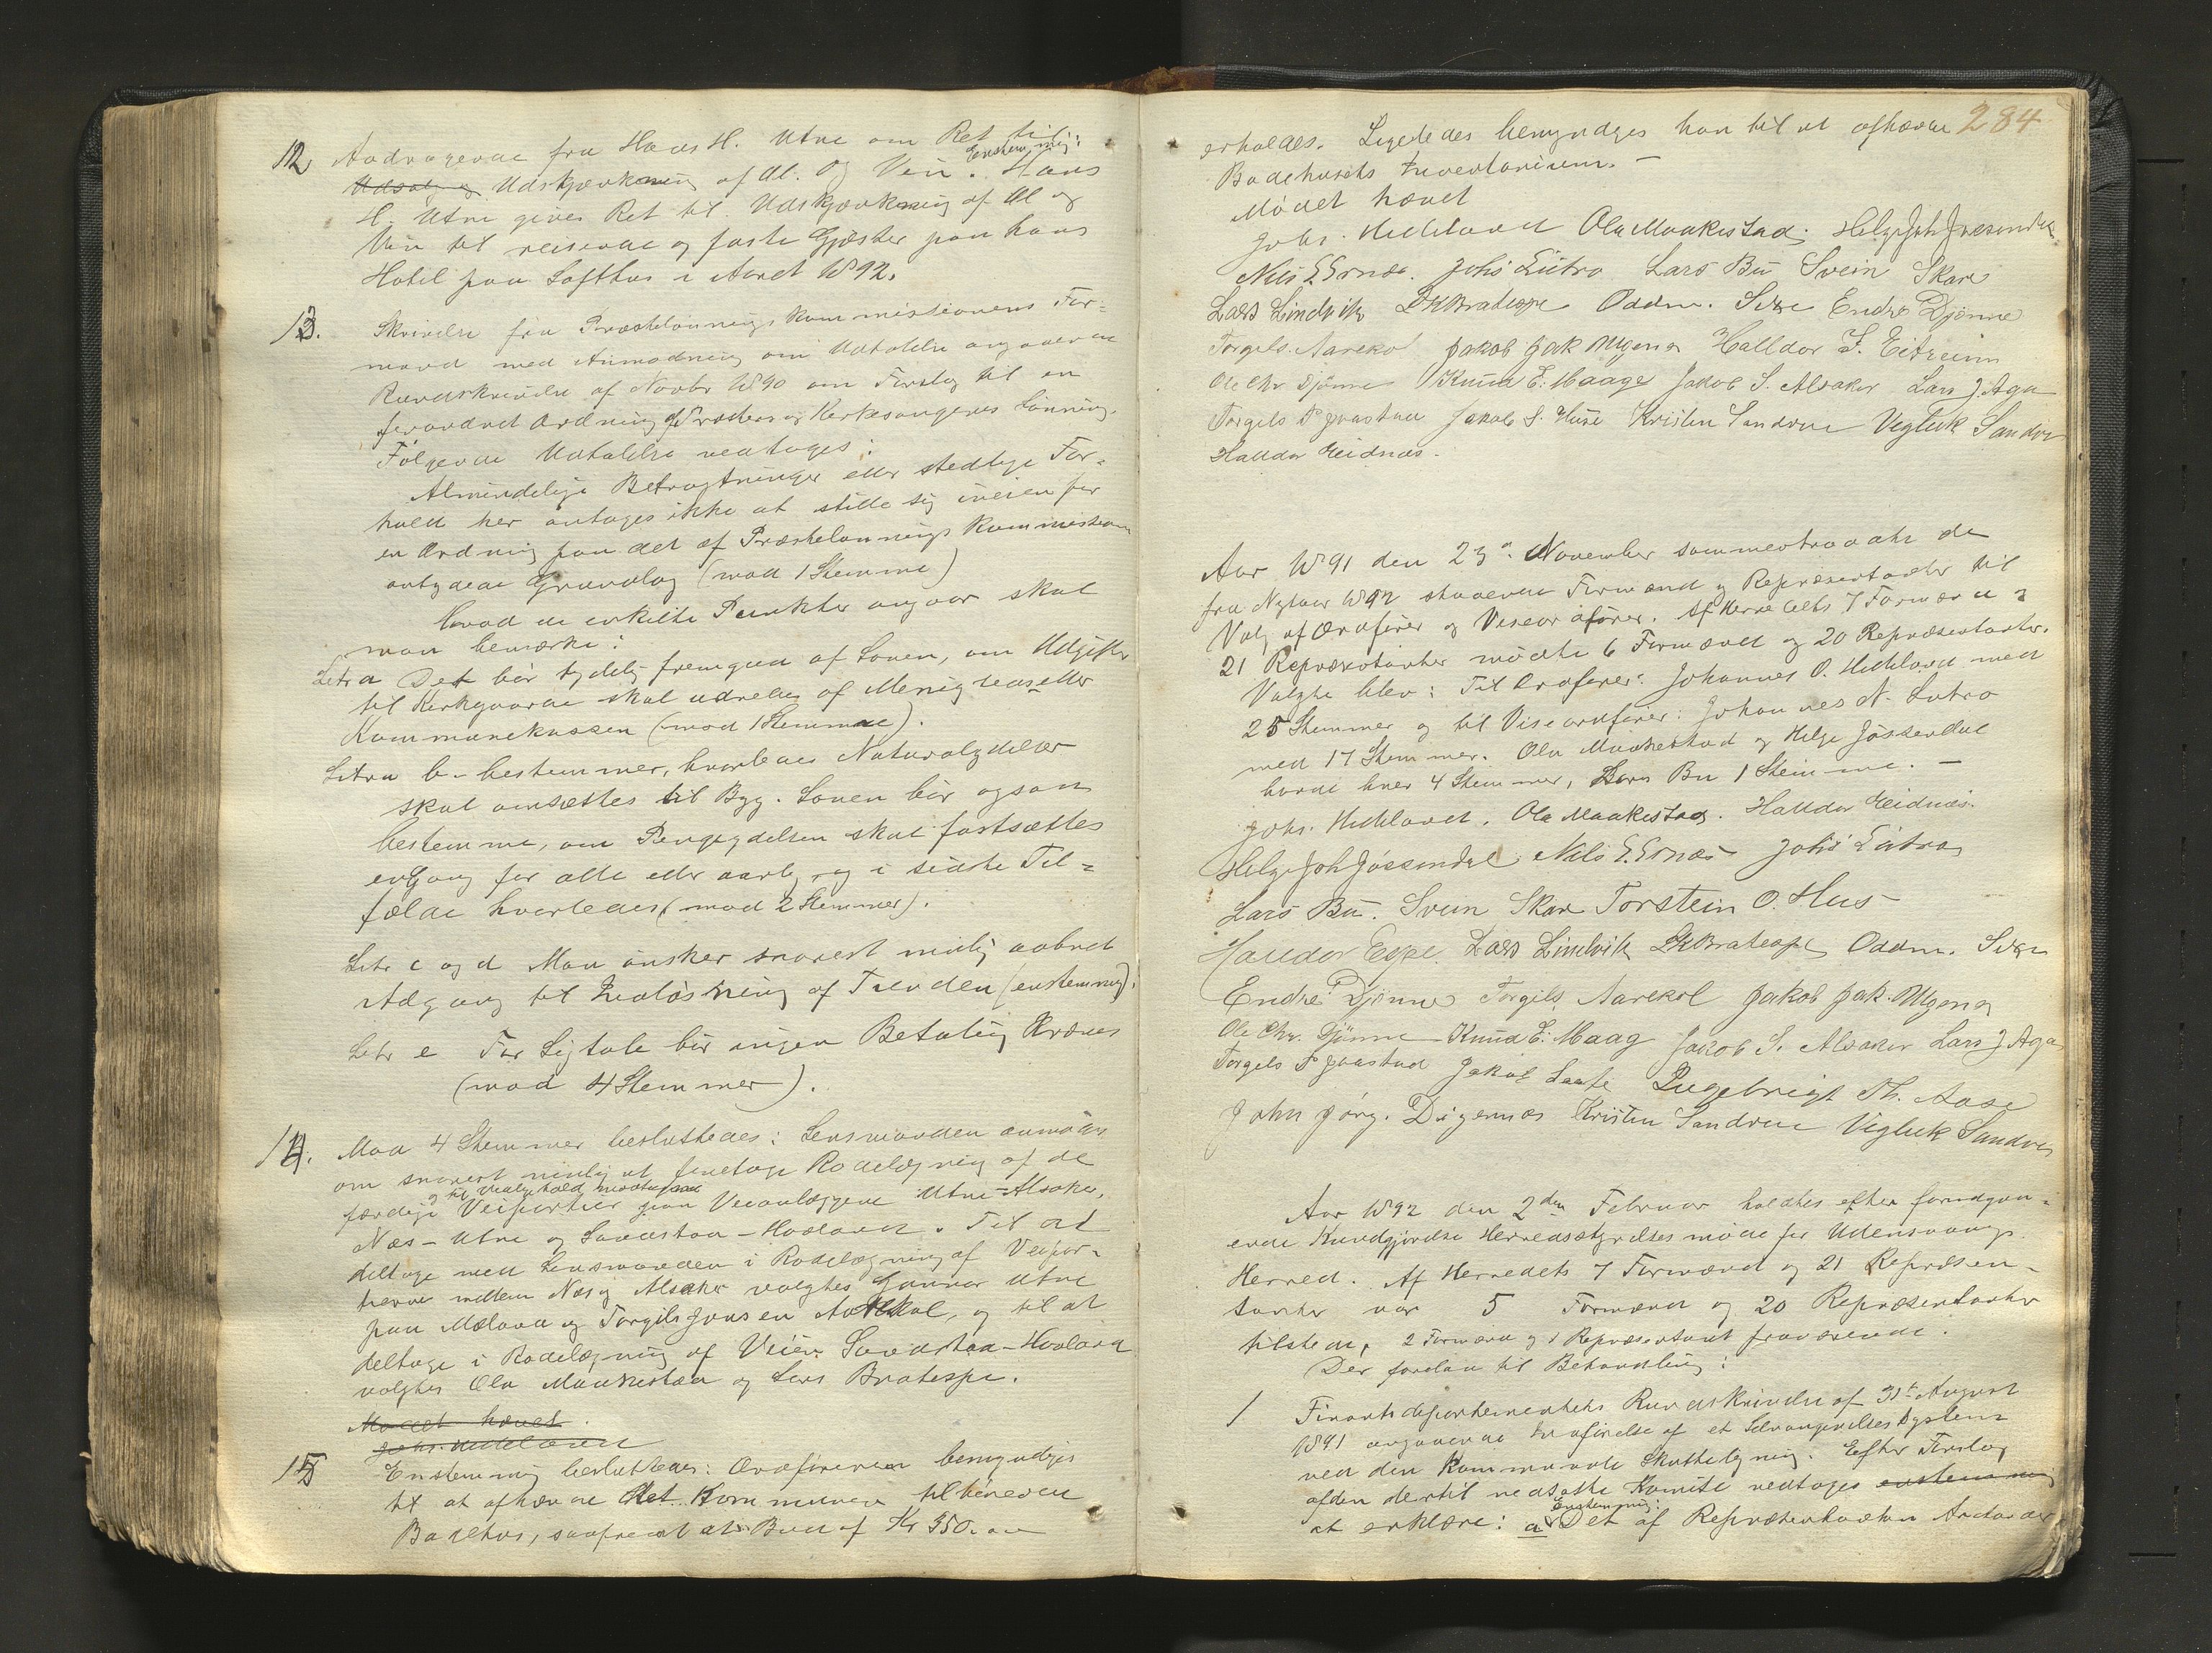 12 Andragende fra Hans H. Utne om Ret til
Udsalg og Udskjænkning af Øl. og Vin. Enstemmig: Hans
H. Utne gives Ret til Udskjænkning af Øl og
Vin til reisende og faste Gjæster paa hans
Hotel paa Lofthus i Aaret 1892.
13. Skrivelse fra Præstelønningskommissionens For=
mand med Anmodning om Udtalelse angaaende
Rundskrivelse af Novbr 1890 om Forslag til en
forandret Ordning af Præsters og Kirkesangeres Lønning.
Følgende Udtalelse vedtages:
Almindelige Betragtninger eller stedlige For=
hold her antages ikke at stille sig iveien for
en Ordning paa det af Præstelønnings Kommissionen
antydede Grundlag (mod 1 Stemme)
Hvad de enkelte Punkter angaar skal
man bemærke:
Letr a Det bør tydelig fremgaa af Loven, om Udgifter
til Kirkegaarde skal udredes af Menigheds= eller
Kommunekassen (mod 1 Stemme).
Litra b. bestemmer, hvorledes Naturalydelser
skal omsættes til Byg. Loven bør ogsaa
bestemme, om Pengeydelsen skal fastsættes
engang for alle eller aarlig og i sidste Til=
fælde hvorledes (mod 2 Stemmer).
Litr c og d Man ønsker snarest mulig aabnet
Adgang til Indløsning af Tienden (enstemmig).
Letr e For Ligtale bør ingen Betaling kræves
(mod 4 Stemmer).
14. Mod 4 Stemmer besluttedes: Lensmanden anmodes
om snarest mulig at foretage Rodelægning af de
færdige og til Vedligehold modtagne Veiparter paa Veianlæggene Utne-Alsaker,
Næs-Utne og Lovdstad-Hovland. Til at
deltage med Lensmanden i Rodelægning af Veipar=
terne mellem Næs og Alsaker valgtes Gunnar Utne
paa Mæland og Torgils Jonsen Aarekol, og til at
deltage i Rodelægning af Veien Lovdstad-Hovland
valgtes Ola Maakestad og Lars Bratespe.
Mødet hævet.
Johs. Helleland
15 Enstemmig besluttedes: Ordføreren bemyndiges
til at afhænde det Kommunen tilhørende
Badehus, saafremt et Bud af Kr 350.00
284
erholdes. Ligeledes bemyndiges han til at afhænde
Badehusets Inventarium. -
Mødet hævet
Johs. Helleland Ola Maakestad. Helge Joh Jøssendal
Nils E. Ernæs. Johs Lutro Lars Bu Svein Skare
Lars Lindvik LK Bratespe Oddm. Sexe Endre Djønne
Torgils Aarekol Jakob Jak Mgena Halldor J. Eitreim
Ole Chr. Djønne Knud E. Maage Jakob S. Alsaker Lars J. Aga
Torgils P Jaastad Jakob S. Huse Kristen Sandven Vigleik Sandven
Halldor Eidnæs.
Aar 1891 den 23de November sammentraadte de
fra Nytaar 1892 staaende Formænd og Repræsentanter til
Valg af Ordfører og Viseordfører. Af Herredets 7 Formænd og
21 Repræsentanter mødte 6 Formænd og 20 Repræsentanter.
Valgte blev: Til Ordfører: Johannes O. Helleland med
25 Stemmer og til Viseordfører: Johannes N. Lutro
med 17 Stemmer. Ola Maakestad og Helge Jøssendal
havde hver 4 Stemmer, Lars Bu 1 Stemme. -
Johs. Helleland. Ola Maakestad. Halldor Eidnæs.
Helge Joh Jøssendal Nils E. Ernæs Johs Lutro
Lars Bu. Svein Skare Torstein O. Hus
Halldor Espe. Lars Lindvik LK Bratespe Oddm. Sexe
Endre Djønne Torgils Aarekol Jakob Jak. Mgena
Ole Chr. Djønne Knud E. Maage Jakob S. Alsaker Lars J Aga
Torgils P Jaastad Jakob Laate Engebrigt Th. Aase
John Jørg. Digernæs Kristen Sandven Vigleik Sandven
Aar 1892 den 2den Februar holdtes efter forudgaa=
ende Kundgjørelse Herredsstyrelsesmøde for Udensvangs
Herred. Af Herredets 7 Formænd og 21 Repræsen=
tanter var 5 Formænd og 20 Repræsentanter
tilstede, 2 Formænd og 1 Repræsentant fraværende.
Der forelaa til Behandling:
1 Finantsdepartementets Rundskrivelse af 31te August
1891 angaaende Indførelse af et Selvangivelsessystem
ved den kommunale Skattelegning. Efter Forslag
af den dertil nedsatte Komite vedtages enstemmig
at erklære: Enstemmig: a Det af Repræsentanten Aarstader